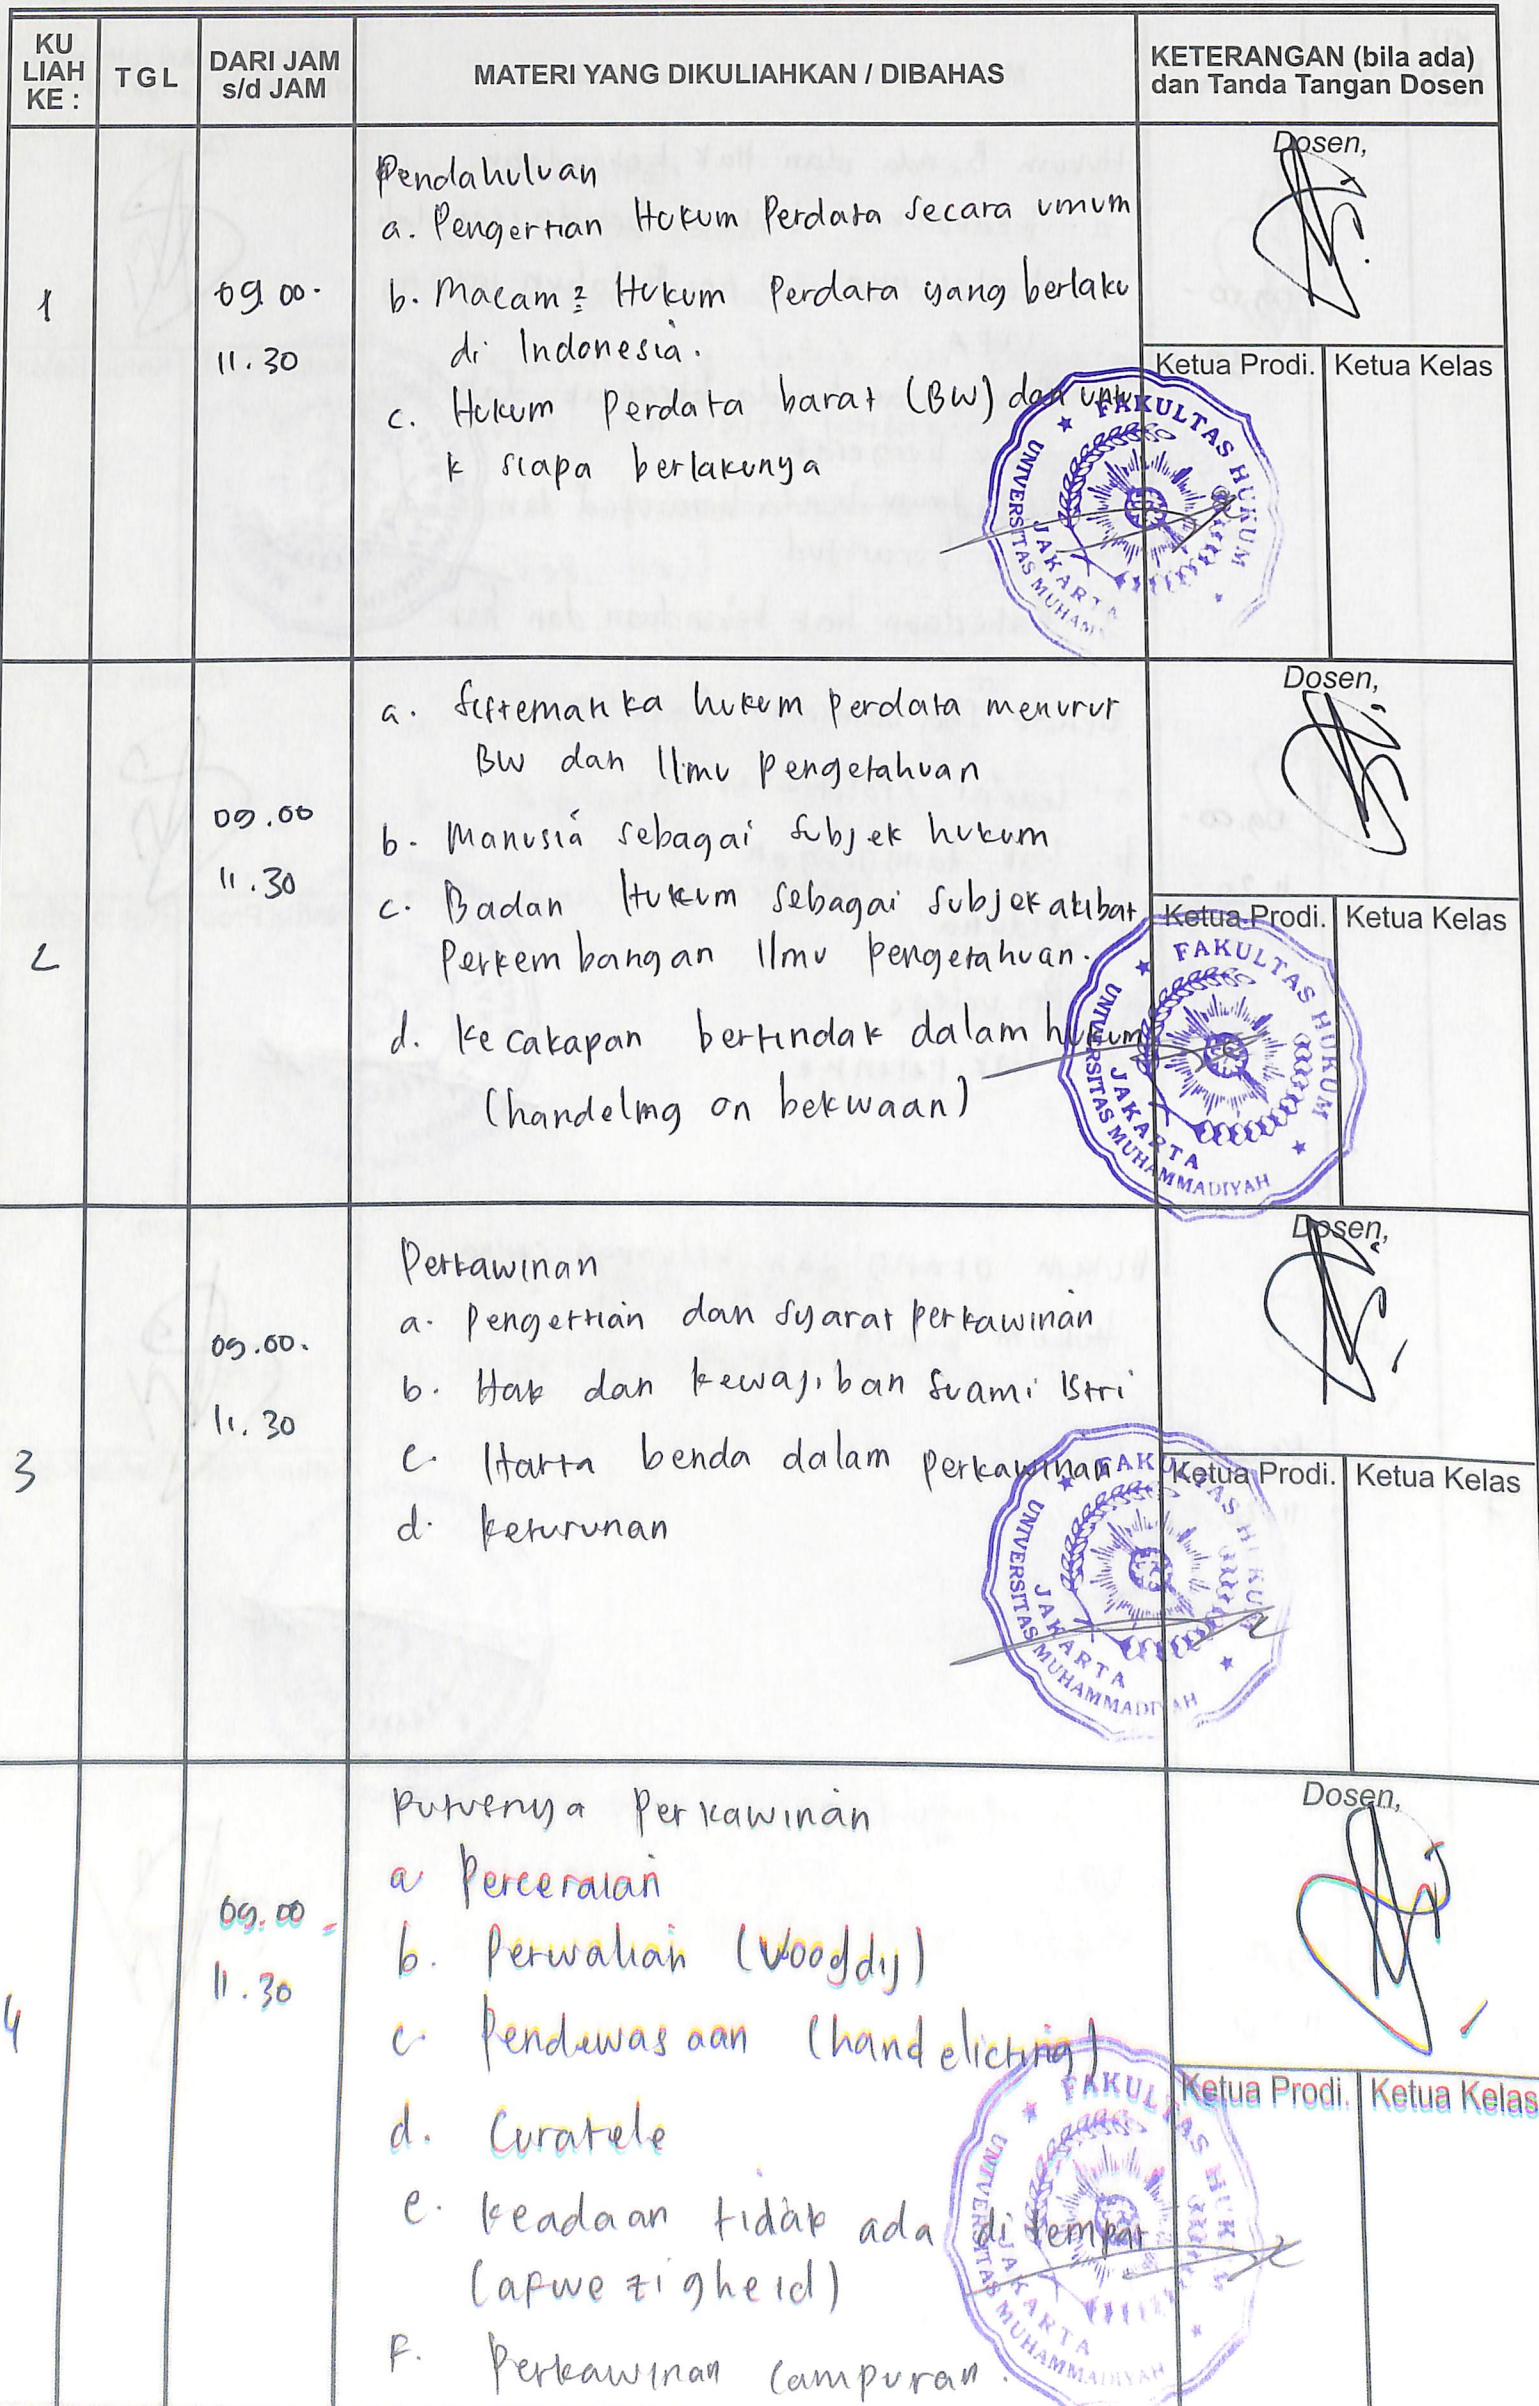 KU
LIAH
KE :
TGL
DARI JAM
s/d JAM
MATERI YANG DIKULIAHKAN / DIBAHAS
KETERANGAN (bila ada)
dan Tanda Tangan Dosen
1
09.00.
11.30
Pendahuluan
a. Pengertian Hukum Perdata Secara umum
b. Macam2 Hukum Perdata yang berlaku
di Indonesia.
c. Hukum Perdata barat (BW) dan untu
k siapa berlakunya
Dosen,
Ketua Prodi.
Ketua Kelas
FAKULTAS HUKUM
UNIVERSITAS MUHAM
JAKARTA
2
09.00
11.30
a. Sistematika hukum perdata menurut
BW dan Ilmu pengetahuan
b. Manusia sebagai Subjek hukum
c. Badan Hukum sebagai Subjek akibat
Perkembangan Ilmu pengetahuan.
d. Kecakapan bertindak dalam hukum
(handeling on bekwaan)
Dosen,
Ketua Prodi.
Ketua Kelas
FAKULTAS HUKUM
UNIVERSITAS MUHAMMADIYAH
JAKARTA
3
09.00.
11.30
Perkawinan
a. Pengertian dan Syarat perkawinan
b. Hak dan kewajiban Suami Istri
c. Harta benda dalam perkawinan
d. keturunan
Dosen,
Ketua Prodi.
Ketua Kelas
FAKULTAS HUKUM
UNIVERSITAS MUHAMMADIYAH
JAKARTA
4
09.00 -
11.30
Putusnya Perkawinan
a Perceraian
b. Perwalian (Voogdij)
c. Pendewasaan (handelicting)
d. Curatele
e. keadaan tidak ada di tempat
(afwezigheid)
F. Perkawinan Campuran.
Dosen,
Ketua Prodi.
Ketua Kelas
FAKULTAS HUKUM
UNIVERSITAS MUHAMMADIYAH
JAKARTA